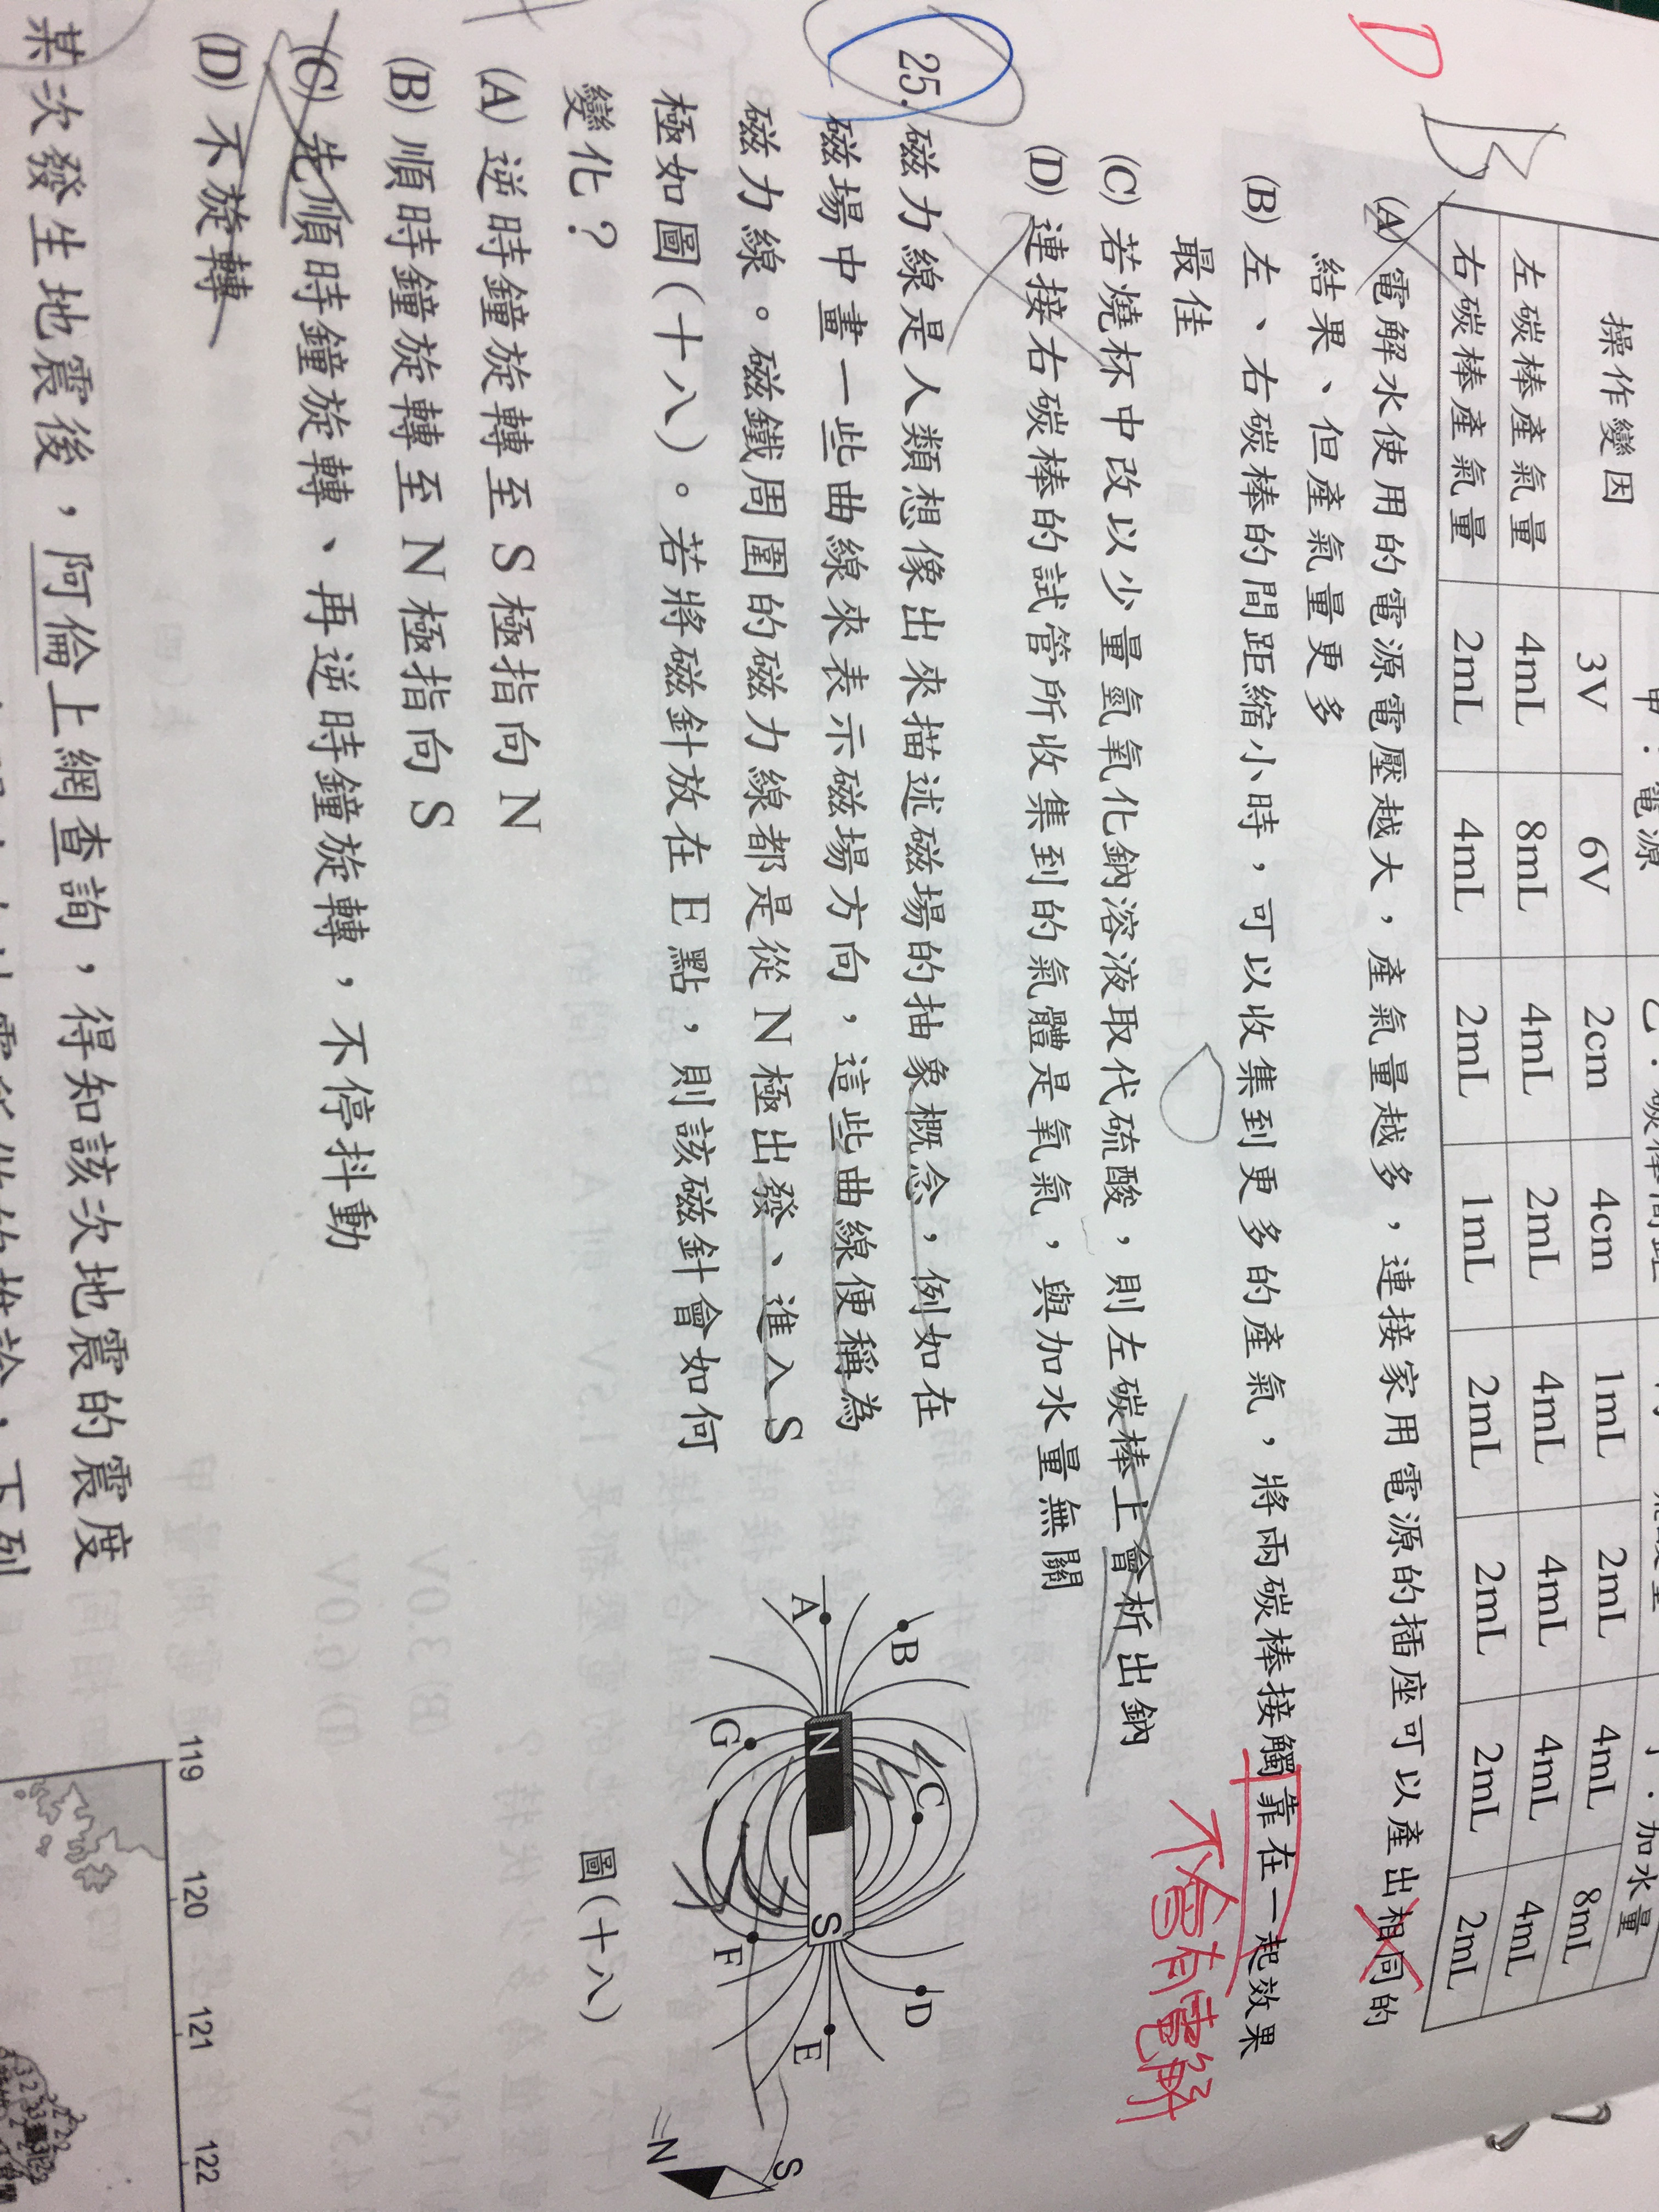 操作變因 電源 加水量
3V 6V 2cm 4cm 1mL 2mL 4mL 8mL
左碳棒產氣量 4mL 8mL 4mL 2mL 4mL 4mL 4mL 4mL
右碳棒產氣量 2mL 4mL 2mL 1mL 2mL 2mL 2mL 2mL
D
B
(A) 電解水使用的電源電壓越大，產氣量越多，連接家用電源的插座可以產出相同的
結果、但產氣量更多
(B) 左、右碳棒的間距縮小時，可以收集到更多的產氣，將兩碳棒接觸靠在一起效果
最佳
不會有電解
(C) 若燒杯中改以少量氫氧化鈉溶液取代硫酸，則左碳棒上會析出鈉
(D) 連接右碳棒的試管所收集到的氣體是氧氣，與加水量無關
25. 磁力線是人類想像出來描述磁場的抽象概念，例如在
磁場中畫一些曲線來表示磁場方向，這些曲線便稱為
磁力線。磁鐵周圍的磁力線都是從 N 極出發、進入 S
極如圖(十八)。若將磁針放在 E 點，則該磁針會如何
變化？
(A) 逆時鐘旋轉至 S 極指向 N
(B) 順時鐘旋轉至 N 極指向 S
(C) 先順時鐘旋轉、再逆時鐘旋轉，不停抖動
(D) 不旋轉
A
B
C
D
E
F
G
N
S
S
N
圖(十八)
某次發生地震後，阿倫上網查詢，得知該次地震的震度
119 120 121 122